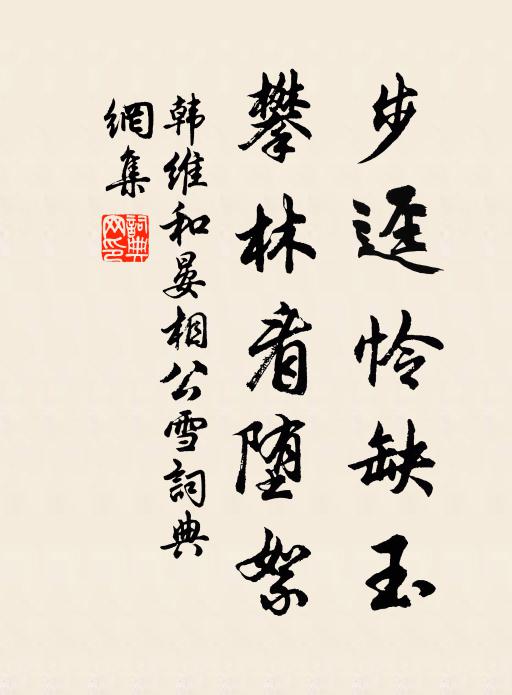 步逕怜缺玉
攀林看堕絮
韩维和晏相公雪詞典
網集
詞典
网印